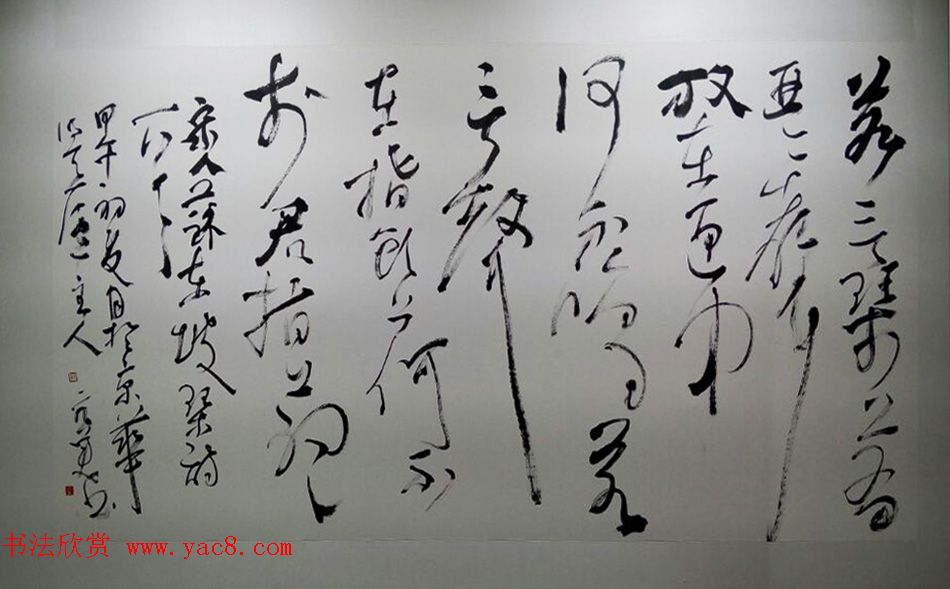 若言琴上有
琴声
放在匣中
何不鸣若
言声
在指头上何不
於君指上听
宋人蘇东坡琴诗
一首
甲午初夏月於京華
主人
书法欣赏 www.yac8.com